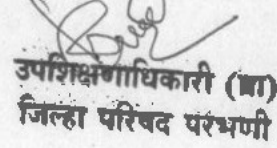 उपशिक्षणाधिकारी (प्रा)
जिल्हा परिषद परभणी